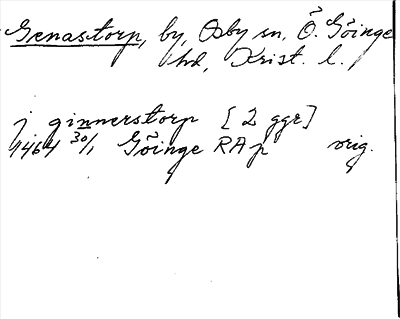 Genastorp, by, Osby sn, Ö. Göinge
hd, Krist. l.
j ginnerstorp [2 ggr]
1464 30/1 Göinge RAp orig.